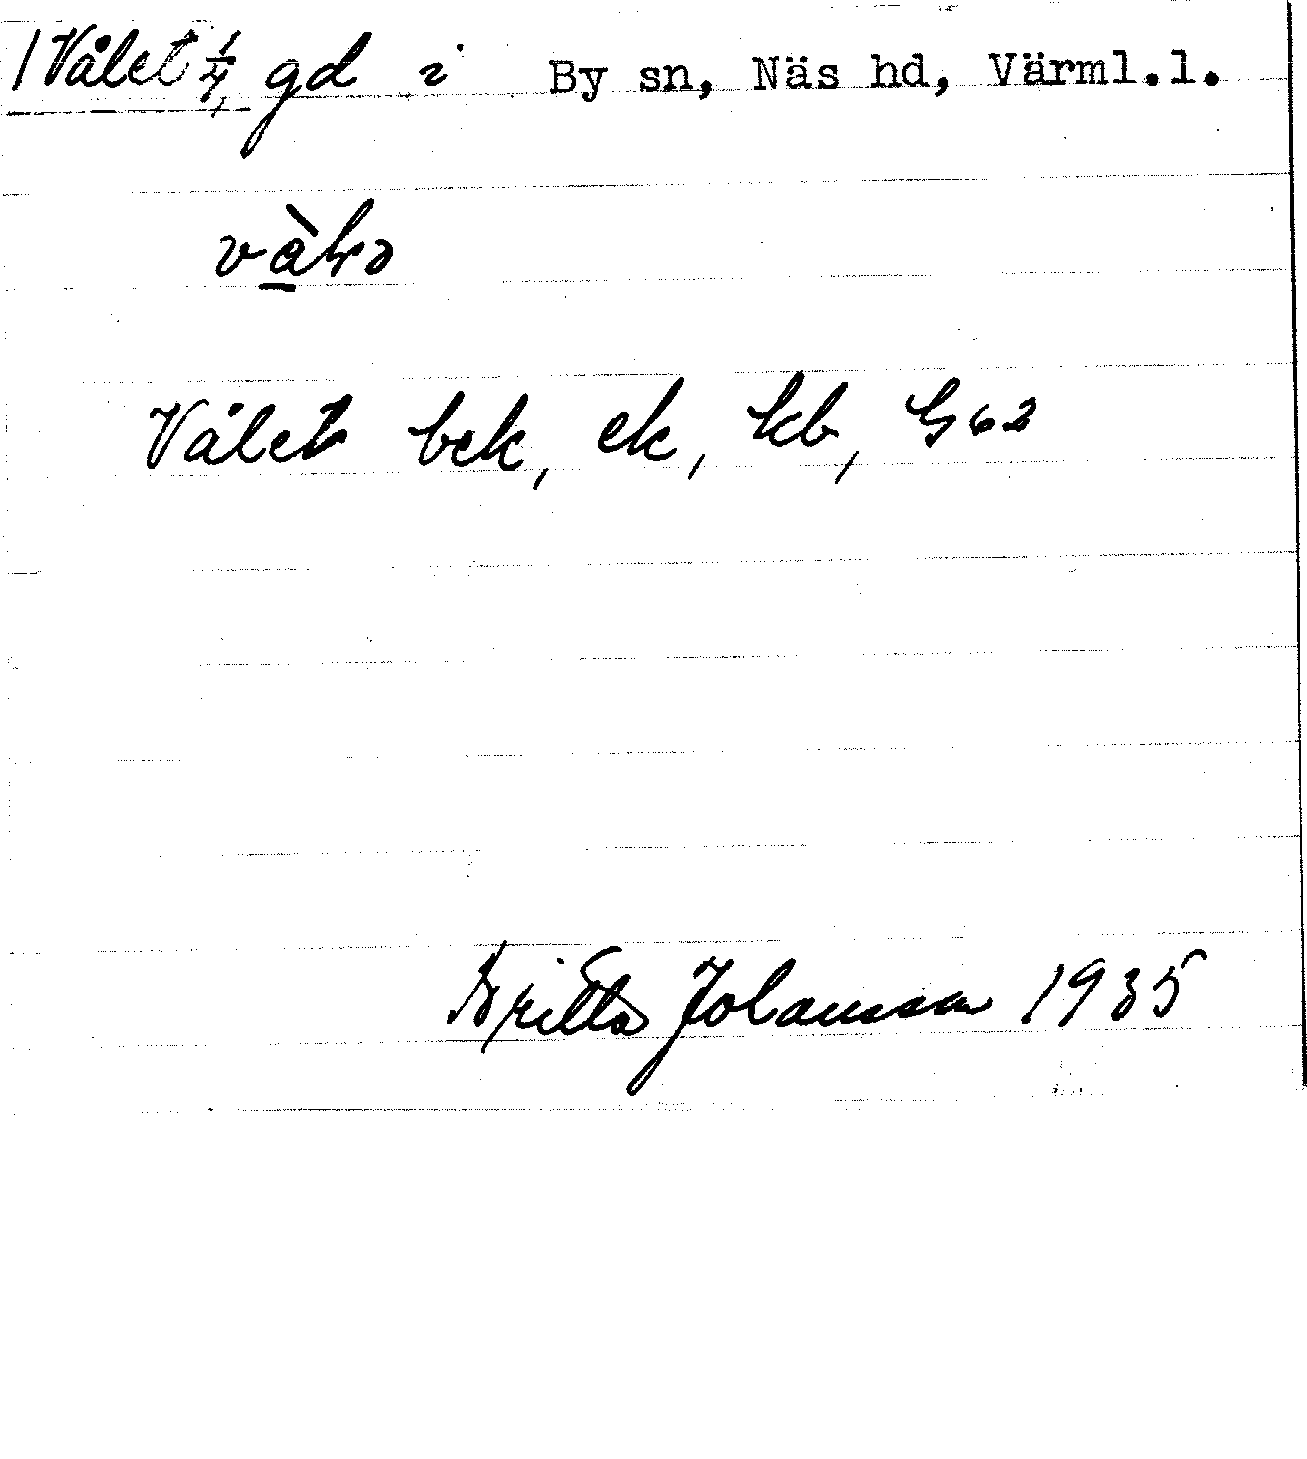 Vålet 1/4, gd i By sn, Näs hd, Värml.l.
Vålet bek, ek, kb, G62
Britta Johansson 1935